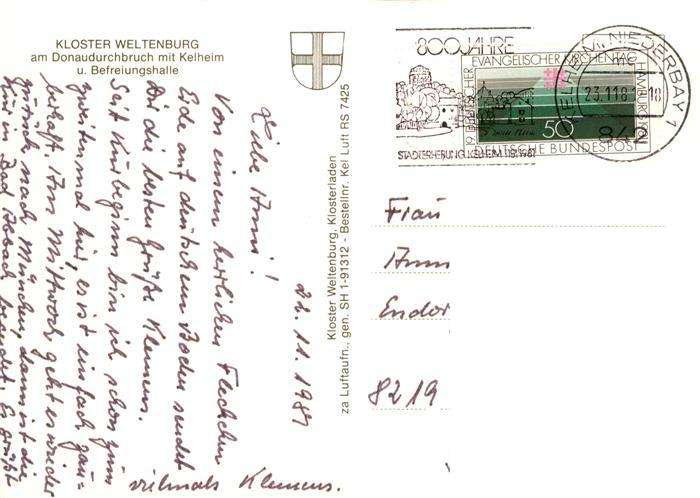 KLOSTER WELTENBURG
am Donaudurchbruch mit Kelheim
u. Befreiungshalle
22.11.1981
Liebe Anni!
Von einem herrlichen Fleckchen
Erde auf deutschem Boden sendet
Dir die besten Grüße Klemens.
Seit Kurbeginn bin ich schon zum
zweitenmal hier, es ist einfach zau=
berhaft. Am Mittwoch geht es wieder
zurück nach München, dann ist die
Kur in Bad Abbach beendet. Es grüßt
vielmals Klemens.
Kloster Weltenburg, Klosterladen
za Luftaufn., gen. SH 1-91312 - Bestellnr. Kel Luft RS 7425
800 JAHRE
STADTERHEBUNG KELHEIM 1181-1981
19. DEUTSCHER EVANGELISCHER KIRCHENTAG HAMBURG 1981
50
DEUTSCHE BUNDESPOST
KELHEIM, NIEDERBAY 1
mc
23.11.81-18
842
Frau
Anni
Endor
8219